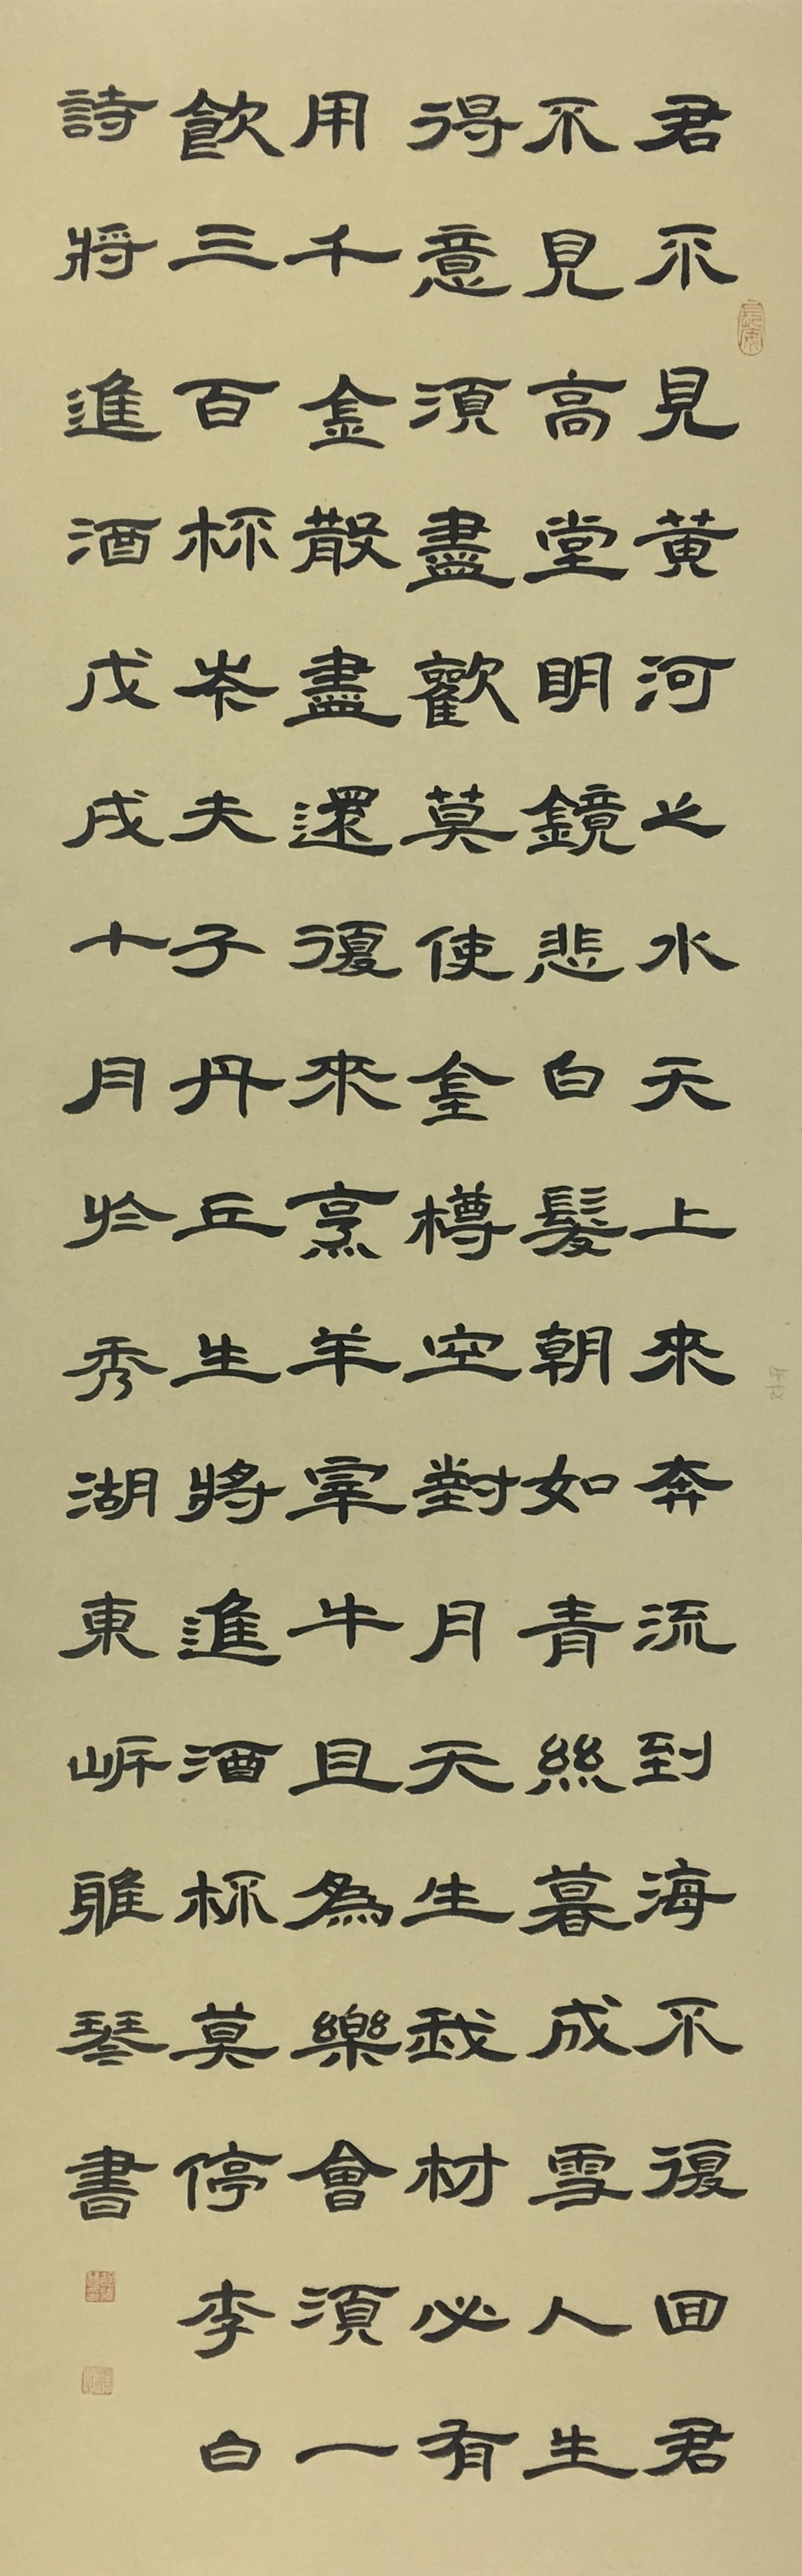 君不見黃河之水天上來奔流到海不復回君
不見高堂明鏡悲白髮朝如青絲暮成雪人生
得意須盡歡莫使金樽空對月天生我材必有
用千金散盡還復來烹羊宰牛且為樂會須一
飲三百杯岑夫子丹丘生將進酒杯莫停李白
詩將進酒戊戌十月於秀湖東岸雅琴書